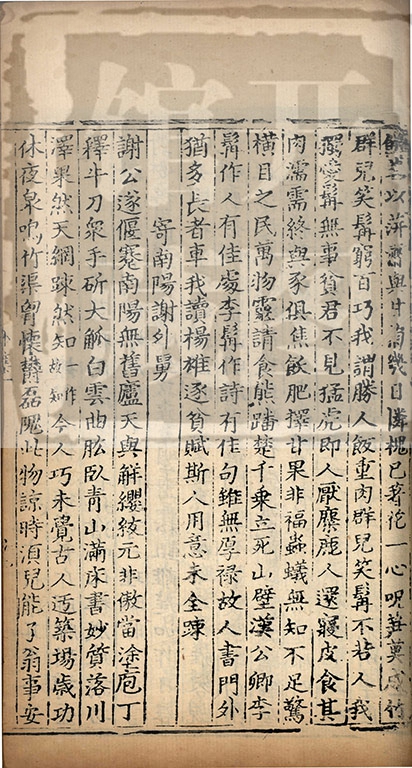 餅芼以蓱虀與甘菊幾日憐槐已著花一心呪筍莫成竹
群兒笑髯窮百巧我謂勝人飯重肉群兒笑髯不若人我
獨愛髯無事貧君不見猛虎即人厭麋鹿人還寢皮食其
肉濡需終與豕俱焦飫肥擇甘果非福蟲蟻無知不足驚
橫目之民萬物靈請食熊蹯楚千乘立死山壁漢公卿李
髯作人有佳處李髯作詩有佳句雖無厚祿故人書門外
猶多長者車我讀楊雄逐貧賦斯人用意未全踈
寄南陽謝外舅
謝公遂偃蹇南陽無舊廬天與解纓紱元非傲當塗庖丁
釋牛刀衆手斫大觚白雲曲肱臥青山滿牀書妙質落川
澤果然天網踈然知一作故知今人巧未覺古人迂築場歲功
休夜泉鳴竹渠胷懷鬱磊隗此物諒時須兒能了翁事安